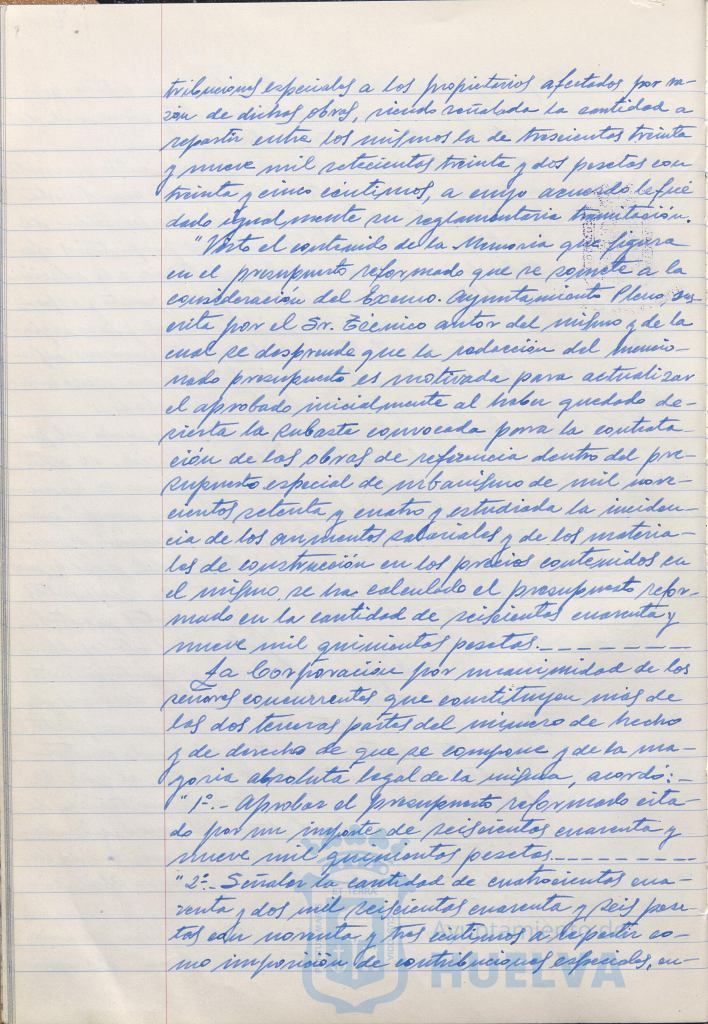 tribuciones especiales a los propietarios afectados por ra-
zón de dichas obras, siendo señalada la cantidad a
repartir entre los mismos la de trescientas treinta
y nueve mil setecientas treinta y dos pesetas con
treinta y cinco céntimos, a cuyo acuerdo le fué
dado igualmente su reglamentaria tramitación.
"Visto el contenido de la Memoria que figura
en el presupuesto reformado que se somete a la
consideración del Excmo. Ayuntamiento Pleno, sus-
crita por el Sr. Técnico autor del mismo y de la
cual se desprende que la redacción del mencio-
nado presupuesto es motivada para actualizar
el aprobado inicialmente al haber quedado de-
sierta la subasta convocada para la contrata-
ción de las obras de referencia dentro del pre-
supuesto especial de urbanismo de mil nove-
cientos setenta y cuatro y estudiada la inciden-
cia de los aumentos salariales y de los materia-
les de construcción en los precios contenidos en
el mismo, se ha calculado el presupuesto refor-
mado en la cantidad de seiscientas cuarenta y
nueve mil quinientas pesetas.
La Corporación por unanimidad de los
señores concurrentes que constituyen más de
las dos terceras partes del número de hecho
y de derecho de que se compone y de la ma-
yoría absoluta legal de la misma, acordó:-
"1º.- Aprobar el presupuesto reformado cita-
do por un importe de seiscientas cuarenta y
nueve mil quinientas pesetas.
"2º.- Señalar la cantidad de cuatrocientas cua-
renta y dos mil seiscientas cuarenta y seis pese-
tas con noventa y tres céntimos a repartir co-
mo imposición de contribuciones especiales, en-
Ayuntamiento de
HUELVA